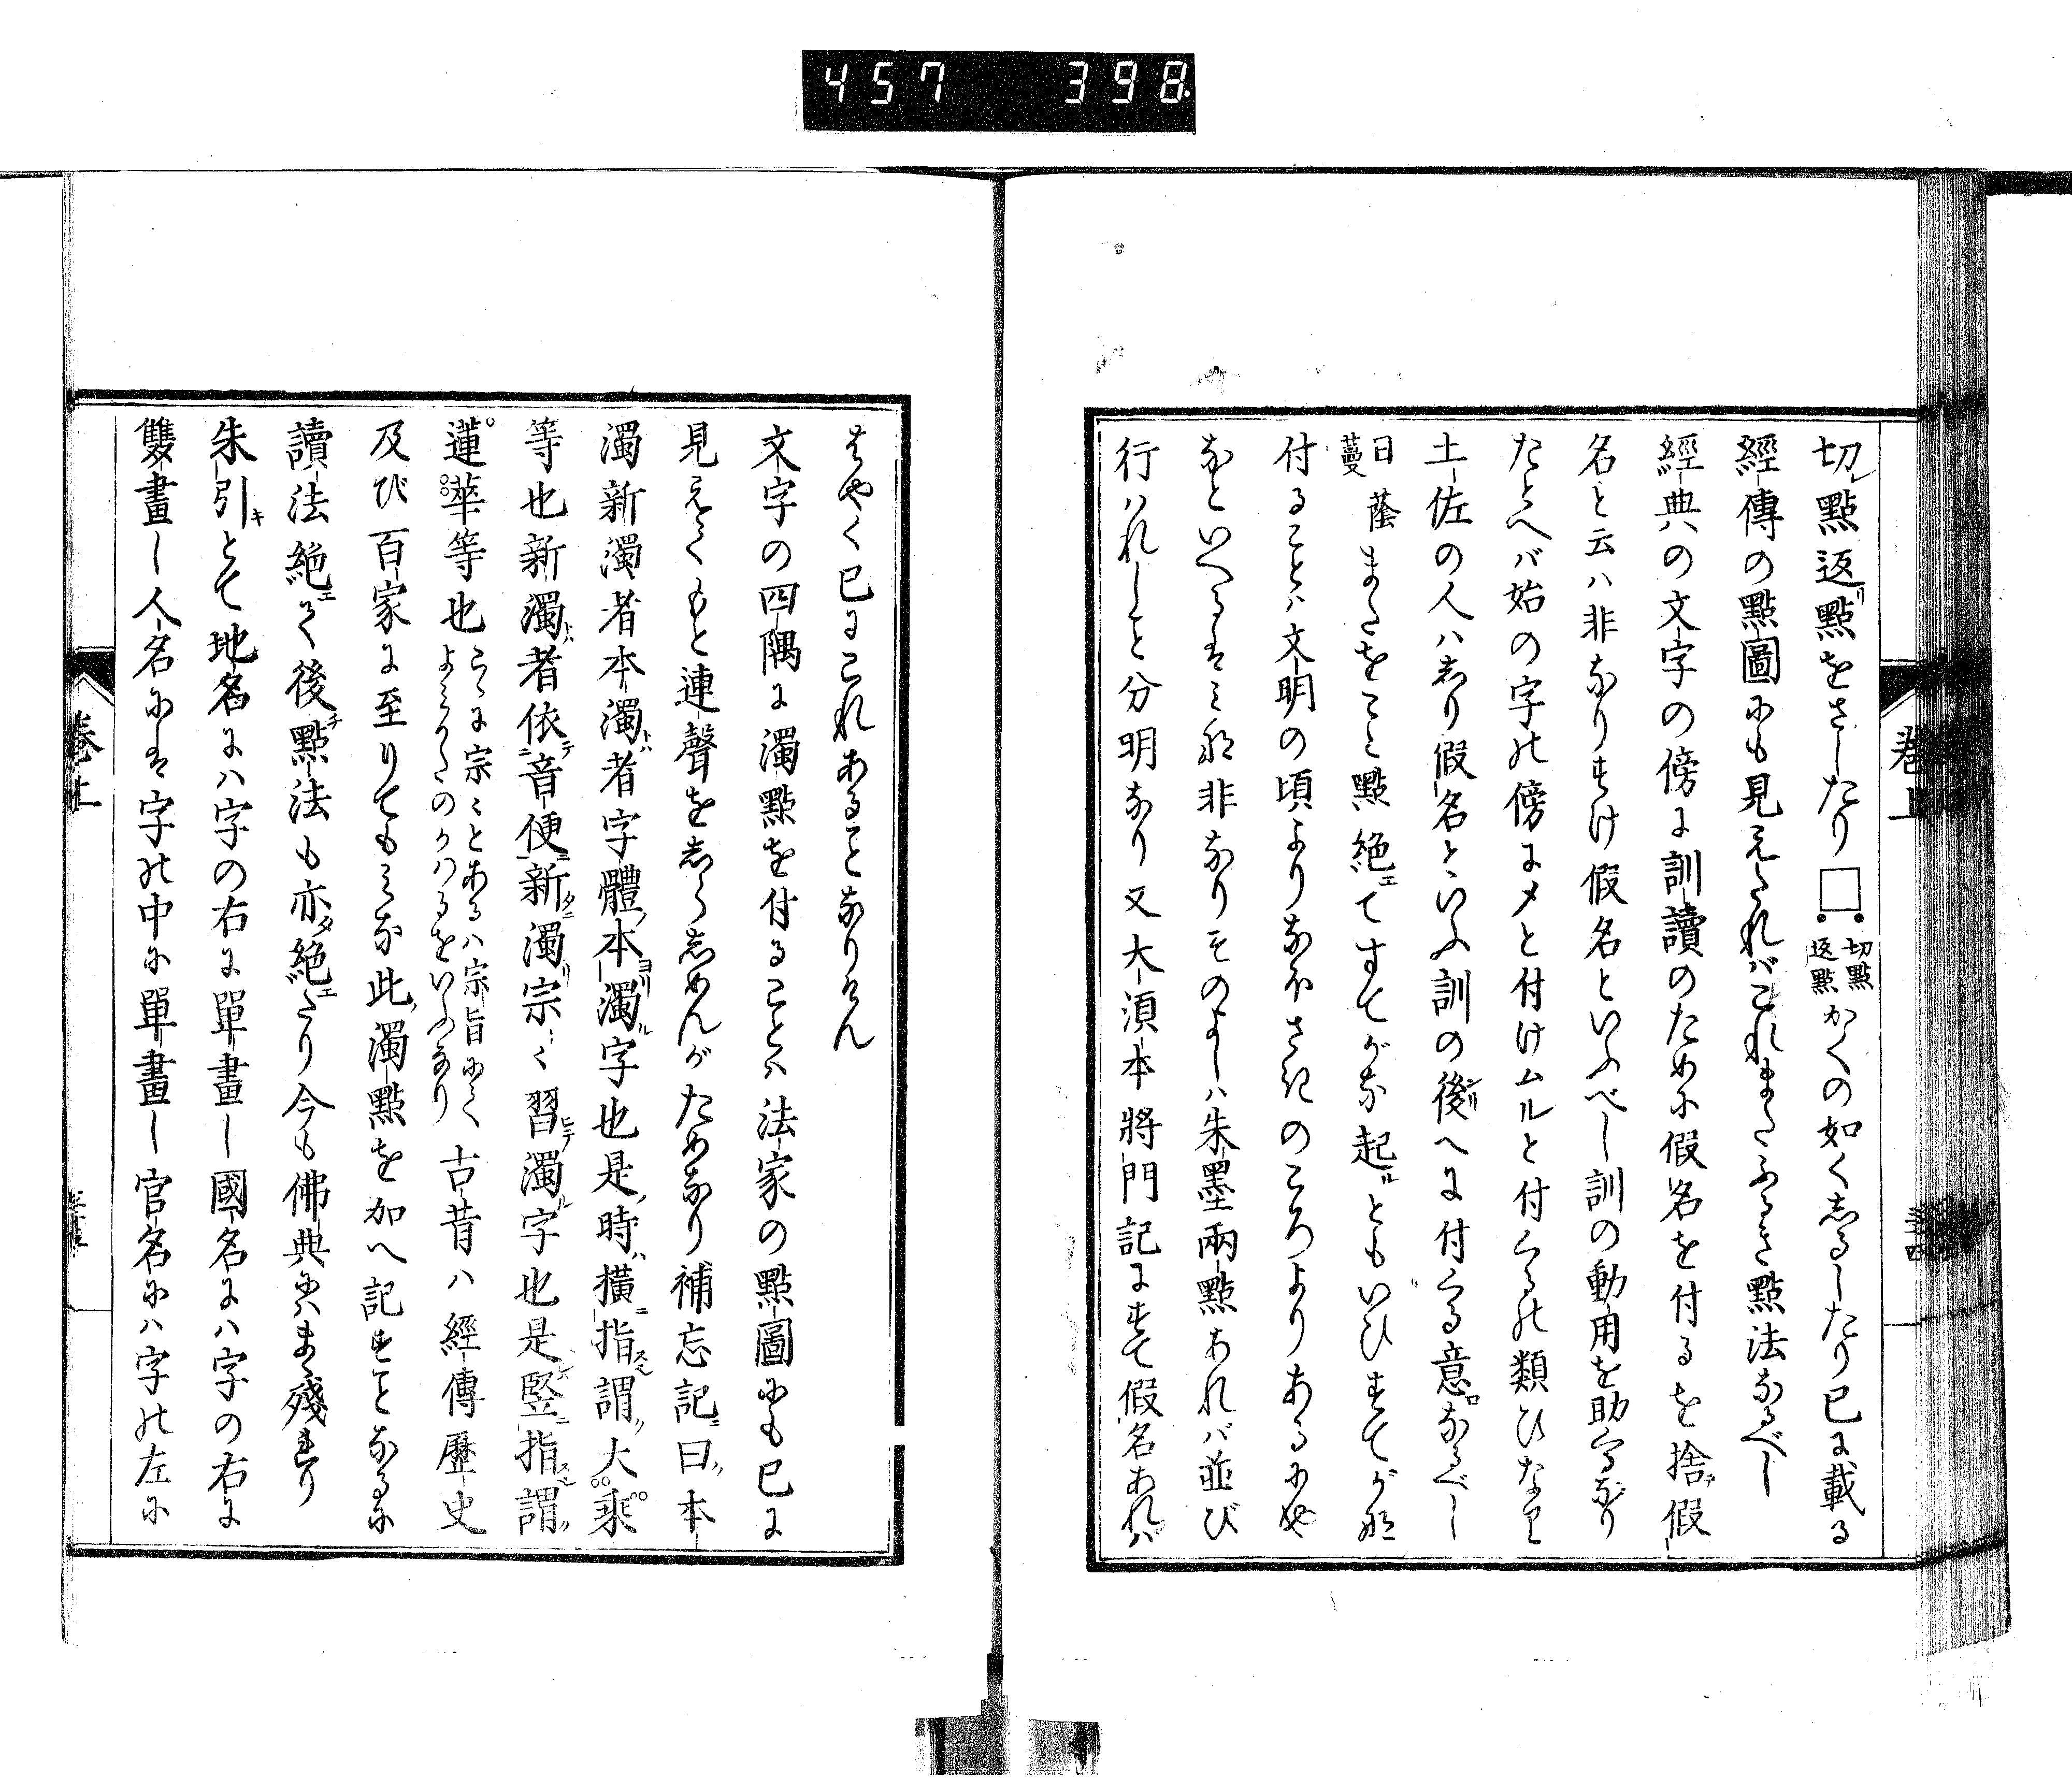 457 398
切レ點返リ點をさしたり□切點返點かくの如く志るしたり已に載る
經傳の點圖にも見えたればこれまたふるき點法なるべし
經典の文字の傍に訓讀のために假名を付るを捨テ假
名と云ハ非なりすけ假名といふべし訓の動用を助字なり
たとへバ始の字の傍にメと付けムルと付くるの類ひなり
土佐の人ハ志り假名といふ訓の後シリへに付くる意ロなるべし
日蔭蔓またをここ點絶エてすてがな起ルともいひすてがな
付ることハ文明の頃よりなほさきのころよりあるにや
なといへるはみな非なりそのよしハ朱墨兩點あれバ並び
行ハれしこと分明なり又大湏本將門記にすて假名あれバ
巻上
はやく已にこれあることなりけん
文字の四隅に濁點を付ることハ法家の點圖にも已に
見えてもと連聲を志らしめんがためなり補忘記ニ曰ク本
濁新濁者本濁トハ者字體ノ本ヨリ濁ル字也是ノ時ハ橫ニ指スベシ謂ク大乘
等也新濁トハ者依テニ音便ニ一新タニ濁リ宗〻習ヒテ濁ル字也是レハ竪ニ指スベシ謂ク
蓮華等也こゝに宗〻とあるハ宗旨にてよみかたのかハるをいふなり古昔ハ經傳歷史
及び百家に至りてもみな此ノ濁點を加へ記すことなるに
讀法絕エて後點チ法も亦タ絕エたり今も佛典にハまゝ殘れり
朱引キとて地名にハ字の右に單畫し國名にハ字の右に
雙畫し人名には字の中に單畫し官名にハ字の左に
巻上